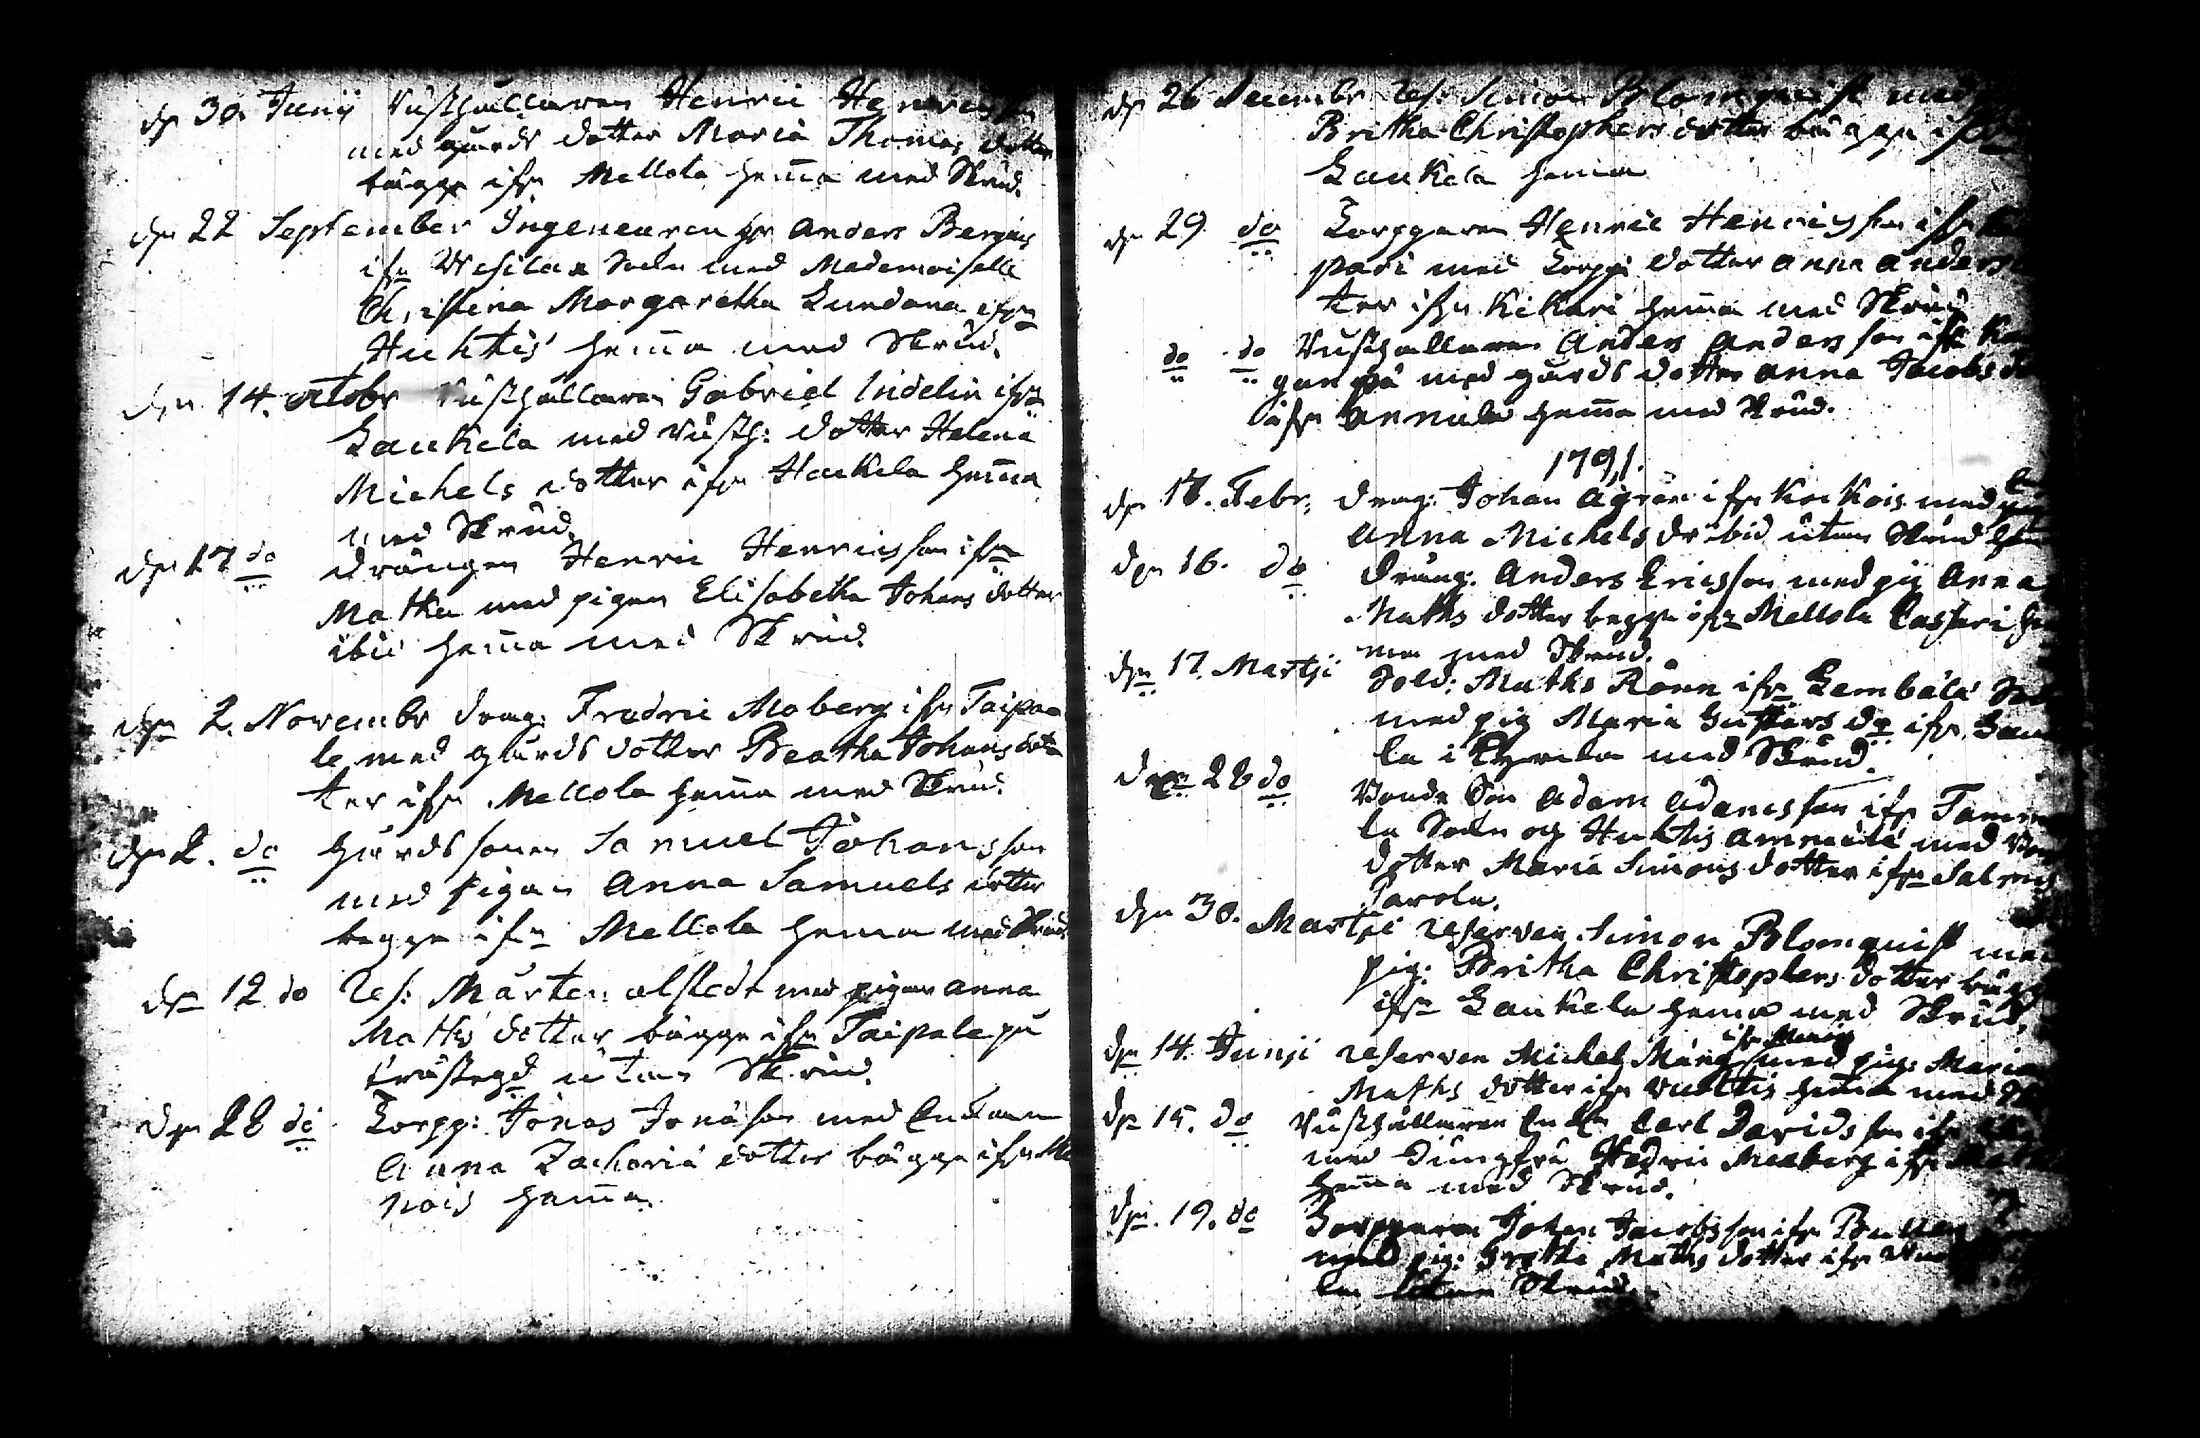 dn 30. Junij Rusthållaren Henric Henricsson
med gårds dotter Maria Thomas dotter
bägge ifrn Mellola hemma med Skrud.
dn 22 September Ingeneuren hr Anders Bergius
ifrn Vesilax Sokn med Mademoiselle
Christina Margaretha Lundana ifrn
Huhtis hemma med Skrud.
dn 14. octobr Rusthållaren Gabriel Indelin ifrn
Laukela med rusth: dotter Helena
Michels dotter ifrn Haukela hemma
med Skrud.
dn 17 do drängen Henric Henricsson ifrn
Matku med pigan Elisabetha Johans dotter
ibid hemma med Skrud.
dn 2. Novembr dräng: Fredric Moberg ifrn Taipa
le med gårds dotter Beatha Johans dot
ter ifrn Mellola hemma med Skrud.
dn 2. do gårds sonen Samuel Johansson
med pigan Anna Samuels dotter
begge ifrn Mellola hemma med Skrud
dn 12 do Res: Mårten alstedt med pigan Anna
Maths dotter bägge ifrn Taipale på
utan Skrud.
dn 28 do Torpp: Jonas Jonasson med Enkan
Anna Zacharia dotter bägge ifrn
nois hemma.
dn 26 Decembr Res: Simon Blomquist med
Britha Christophers dotter bägge ifrn
Laukela hemma
dn 29 do Torpparen Henric Henricsson ifrn
pari med Torpp dotter Anna Anders
ter ifrn Kikari hemma med Skrud
do do Rusthållaren Anders Andersson ifrn
med gårds dotter Anna Jacobs do
ifrn Annula hemma med Skrud.
1791.
dn Febr: dräng: Johan Ågren ifrn Koikois med
Anna Michels dr ibid utan Skrud
dn 16. do dräng: Anders Ericsson med pig Anna
Maths dotter begge ifrn Mellola Casseri he
ma med Skrud.
dn 17. Martji Sold: Maths Rönn ifrn Lembälä
med pig Maria Gustavs dr ifrn
la i Kyrckan med Skrud.
den 28 do Bonde Son Adam Adamsson ifrn Tamme
la Sokn og Huhtis med
dotter Maria Simons dotter ifrn
Parola.
dn 30. Martji reserven Simon Blomquist med
pig: Britha Christophers dotter bägg
ifrn Laukela hemma med Skrud.
dn 14. Junji reserven Michel med pig: Maria
Maths dotter ifrn Vuoltis hemma med
dn 15. do Rusthållaren Carl Davidsson ifrn
med Jungfru Hedvic Meeberg ifrn
hemma med Skrud.
dn 19. do Torpparen Johan Jacobsson ifrn
med pig: Gretha Maths dotter ifrn
la utan Skrud.